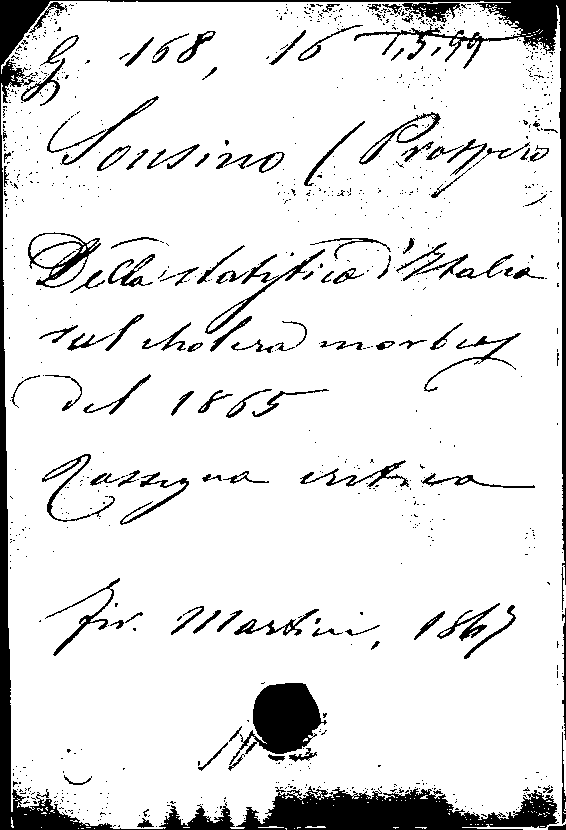 G. 168, 16 1.5.99
Sonsino (Prospero)
Della statistica d'Italia
sul cholera morbus
del 1865
Rassegna critica
Fir. Martini, 1867
N